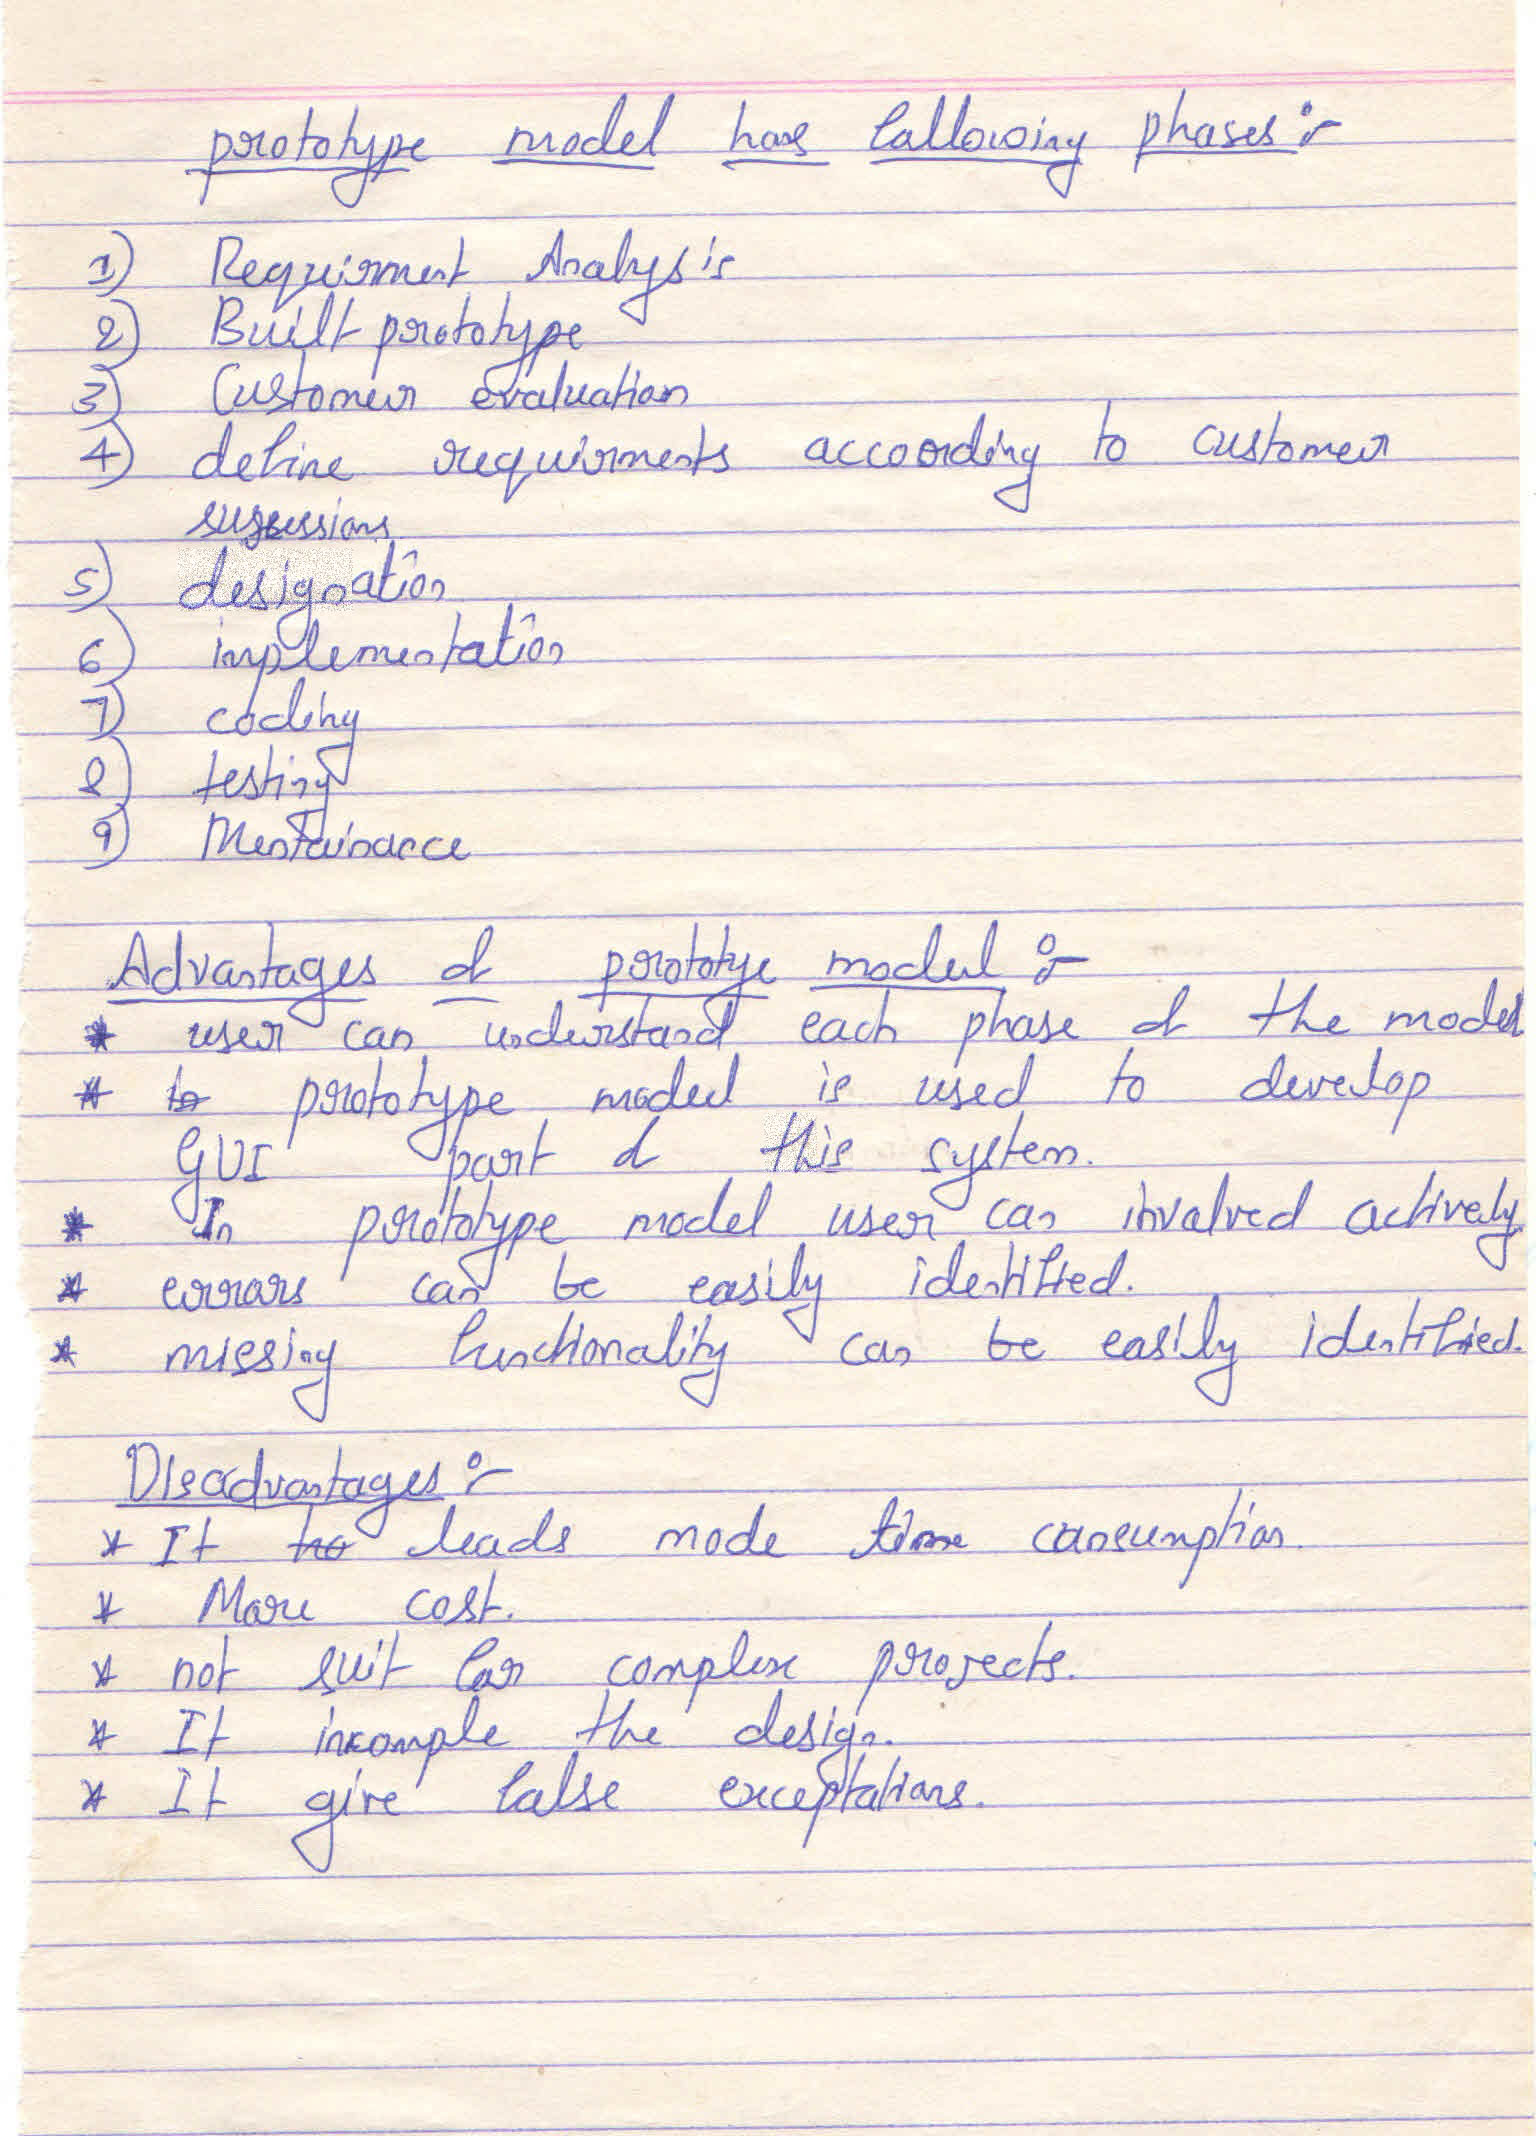 prototype model has following phases :-
1) Requirment Analysis
2) Built prototype
3) Customer evaluation
4) define requirments according to customer
suggessians
5) designation
6) implementation
7) coding
8) testing
9) Mentainance
Advantages of prototye model :-
* user can understand each phase of the model
* to prototype model is used to develop
GUI part of this system.
* In prototype model user can involved actively
* errors can be easily identified.
* missing functionality can be easily identified.
Disadvantages :-
* It leads mode time consumption.
* More cost.
* not suit for complex projects.
* It incomple the design.
* It give false exceptations.